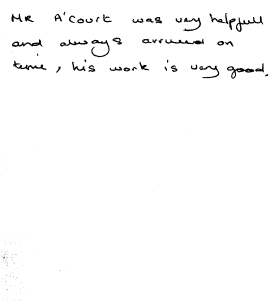 Mr A'Court was very helpfull
and always arrived on
time, his work is very good.